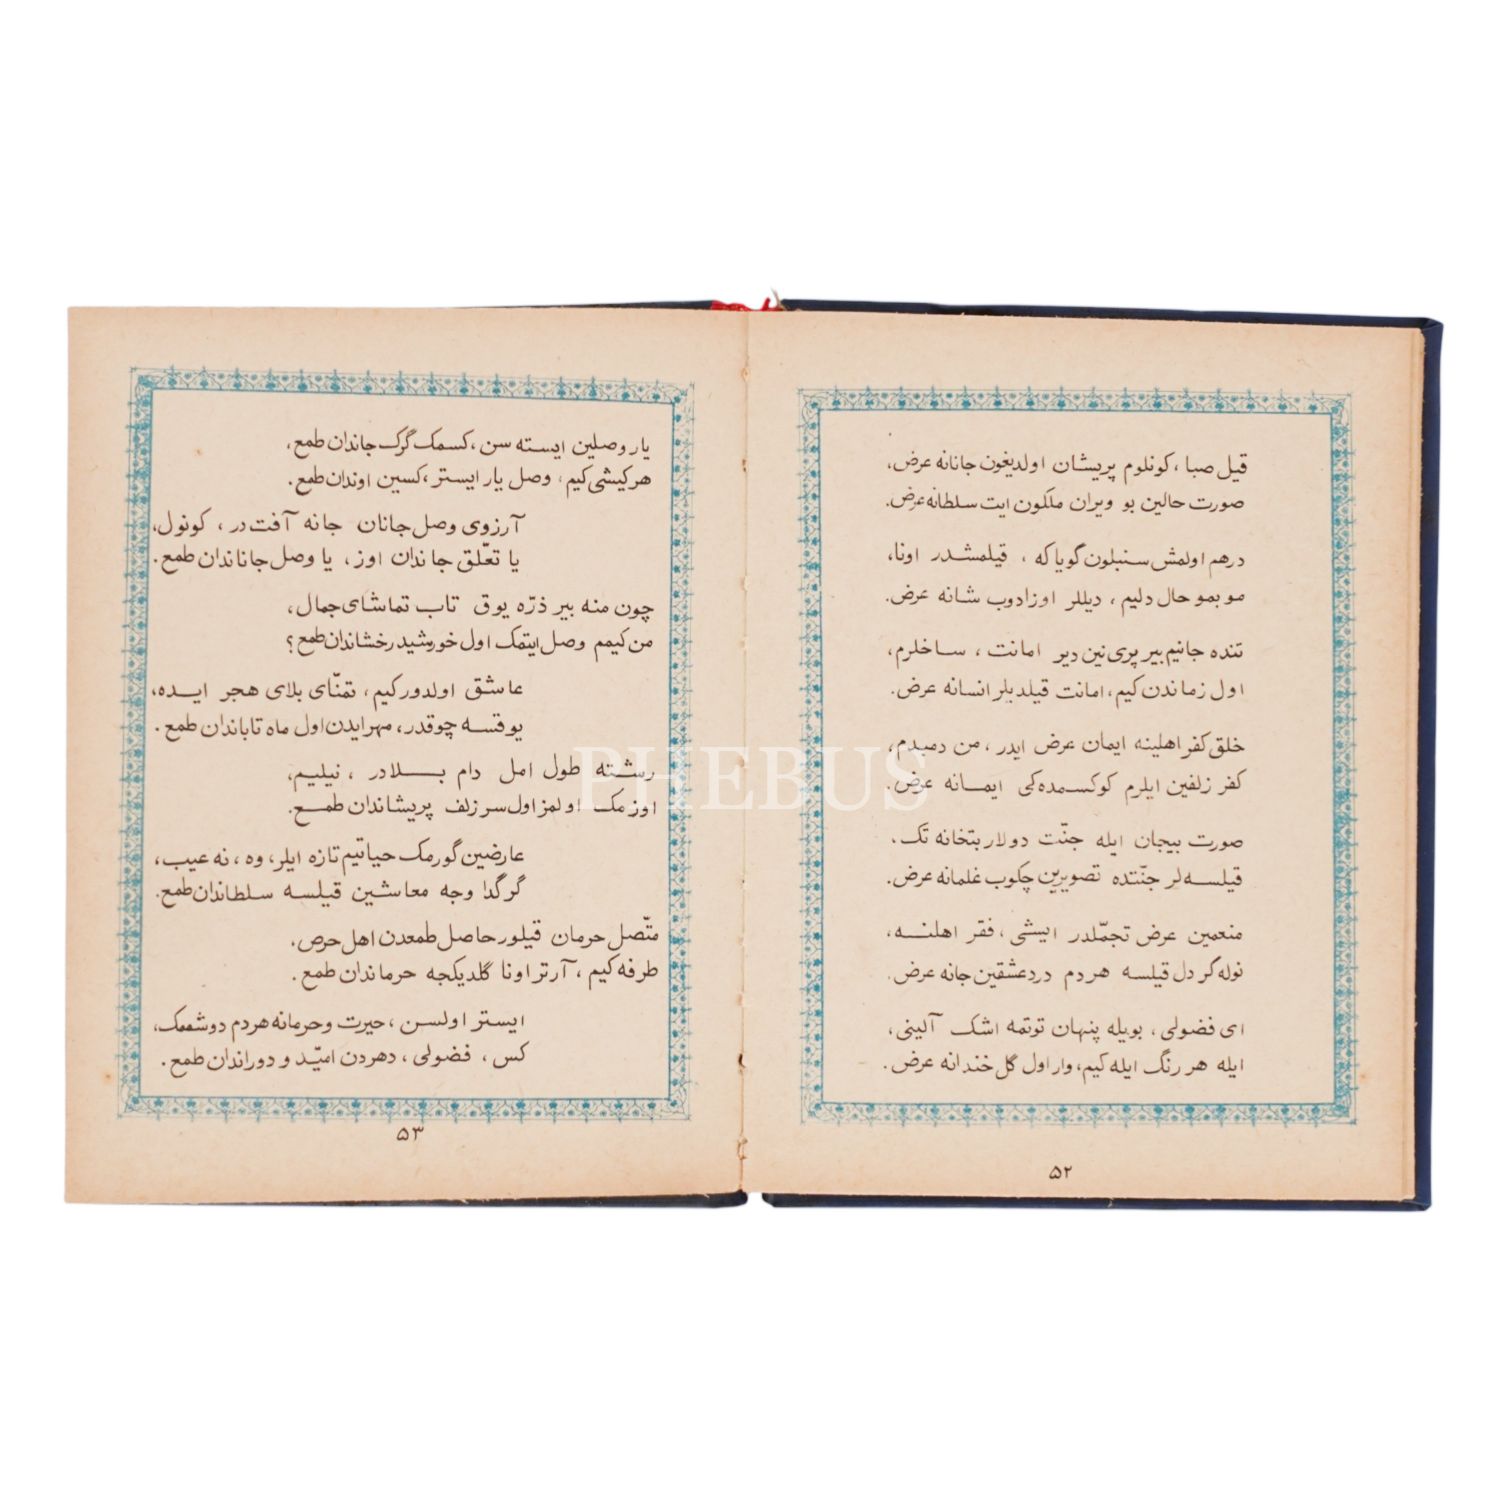 قیل صبا ، کونلوم پریشان اولدیغون جانانه عرض،
صورت حالین بو ویران ملکون ایت سلطانه عرض.
درهم اولمش سنبلون گویا که ، قیلمشدر اونا،
مو بمو حال دلیم ، دیللر اوزادوب شانه عرض.
تنده جانیم بیر پری نین دیر امانت ، ساخلرم،
اول زماندن کیم، امانت قیلدیلر انسانه عرض.
خلق کفر اهلینه ایمان عرض ایدر ، من دمبدم،
کفر زلفین ایلرم کوکسمده کی ایمانه عرض.
صورت بیجان ایله جنّت دولار بتخانه تک،
قیلسه لر جنّتده تصویرین چکوب غلمانه عرض.
منعمین عرض تجمّلدر ایشی ، فقر اهلنه،
نوله گر دل قیلسه هر دم درد عشقین جانه عرض.
ای فضولی ، بویله پنهان توتمه اشک آلینی،
ایله هر رنگ ایله کیم، وار اول گل خندانه عرض.
۵۲
یار وصلین ایسته سن ، کسمک گرک جاندان طمع،
هر کیشی کیم، وصل یار ایستر، کسین اوندان طمع.
آرزوی وصل جانان جانه آفت در ، کونول،
یا تعلّق جاندان اوز ، یا وصل جاناندان طمع.
چون منه بیر ذرّه یوق تاب تماشای جمال،
من کیمم وصل ایتمک اول خورشید رخشاندان طمع؟
عاشق اولدور کیم، تمنّای بلای هجر ایده،
یوقسه چوقدر، مهر ایدن اول ماه تاباندان طمع.
رشته طول امل دام بلادر ، نیلیم،
اوزمک اولمز اول سر زلف پریشاندان طمع.
عارضین گورمک حیاتیم تازه ایلر، وه ، نه عیب،
گر گدا وجه معاشین قیلسه سلطاندان طمع.
متّصل حرمان قیلور حاصل طمعدن اهل حرص،
طرفه کیم ، آرتر اونا گلدیکجه حرماندان طمع.
ایستر اولسن ، حیرت و حرمانه هر دم دوشممک،
کس ، فضولی ، دهردن امیّد و دوراندان طمع.
۵۳
PHEBUS